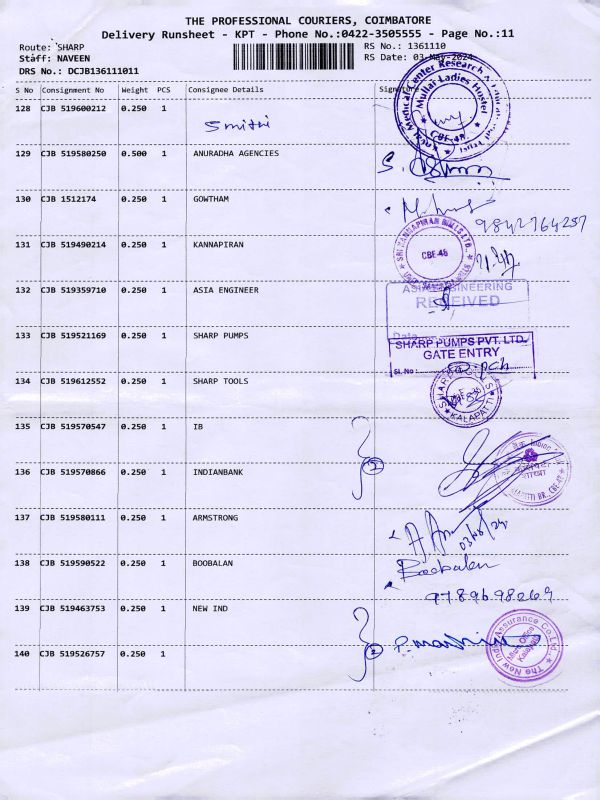 THE PROFESSIONAL COURIERS, COIMBATORE
Delivery Runsheet - KPT - Phone No.:0422-3505555 - Page No.:11
Route: SHARP
RS No.: 1361110
Staff: NAVEEN
RS Date: 03-May-2024
DRS No.: DCJB136111011
S No Consignment No Weight PCS Consignee Details Signature
128 CJB 519600212 0.250 1
Medical Center Research
Mullai Ladies Hostel
CBE-48
129 CJB 519580250 0.500 1 ANURADHA AGENCIES
130 CJB 1512174 0.250 1 GOWTHAM
9842764257
131 CJB 519490214 0.250 1 KANNAPIRAN
SRI KANNAPIRAN MILLS LTD.
CBE-48
132 CJB 519359710 0.250 1 ASIA ENGINEER
ASIA ENGINEERING
RECEIVED
Date
133 CJB 519521169 0.250 1 SHARP PUMPS
SHARP PUMPS PVT. LTD.
GATE ENTRY
Sl. No :
134 CJB 519612552 0.250 1 SHARP TOOLS
SHARP TOOLS
KALAPATTI
135 CJB 519570547 0.250 1 IB
2
136 CJB 519570866 0.250 1 INDIANBANK
137 CJB 519580111 0.250 1 ARMSTRONG
138 CJB 519590522 0.250 1 BOOBALAN
Boobalan
9789698269
139 CJB 519463753 0.250 1 NEW IND
2
The New India Assurance Co. Ltd.
Micro Office
Kalapatti
140 CJB 519526757 0.250 1